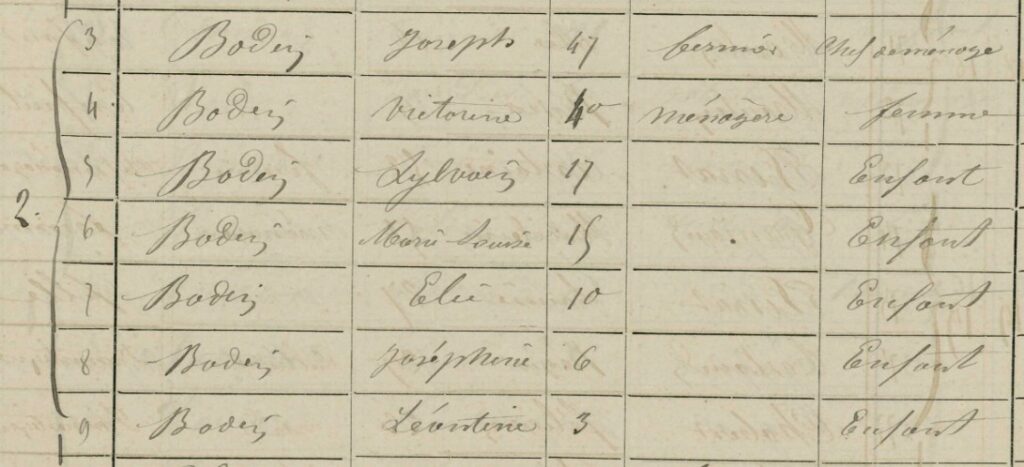 3 Bodin Joseph 47 fermier Chef de ménage
4 Bodin Victorine 40 ménagère femme
5 Bodin Sylvain 17 Enfant
2. 6 Bodin Marie Louise 15 Enfant
7 Bodin Elie 10 Enfant
8 Bodin Joséphine 6 Enfant
9 Bodin Léontine 3 Enfant